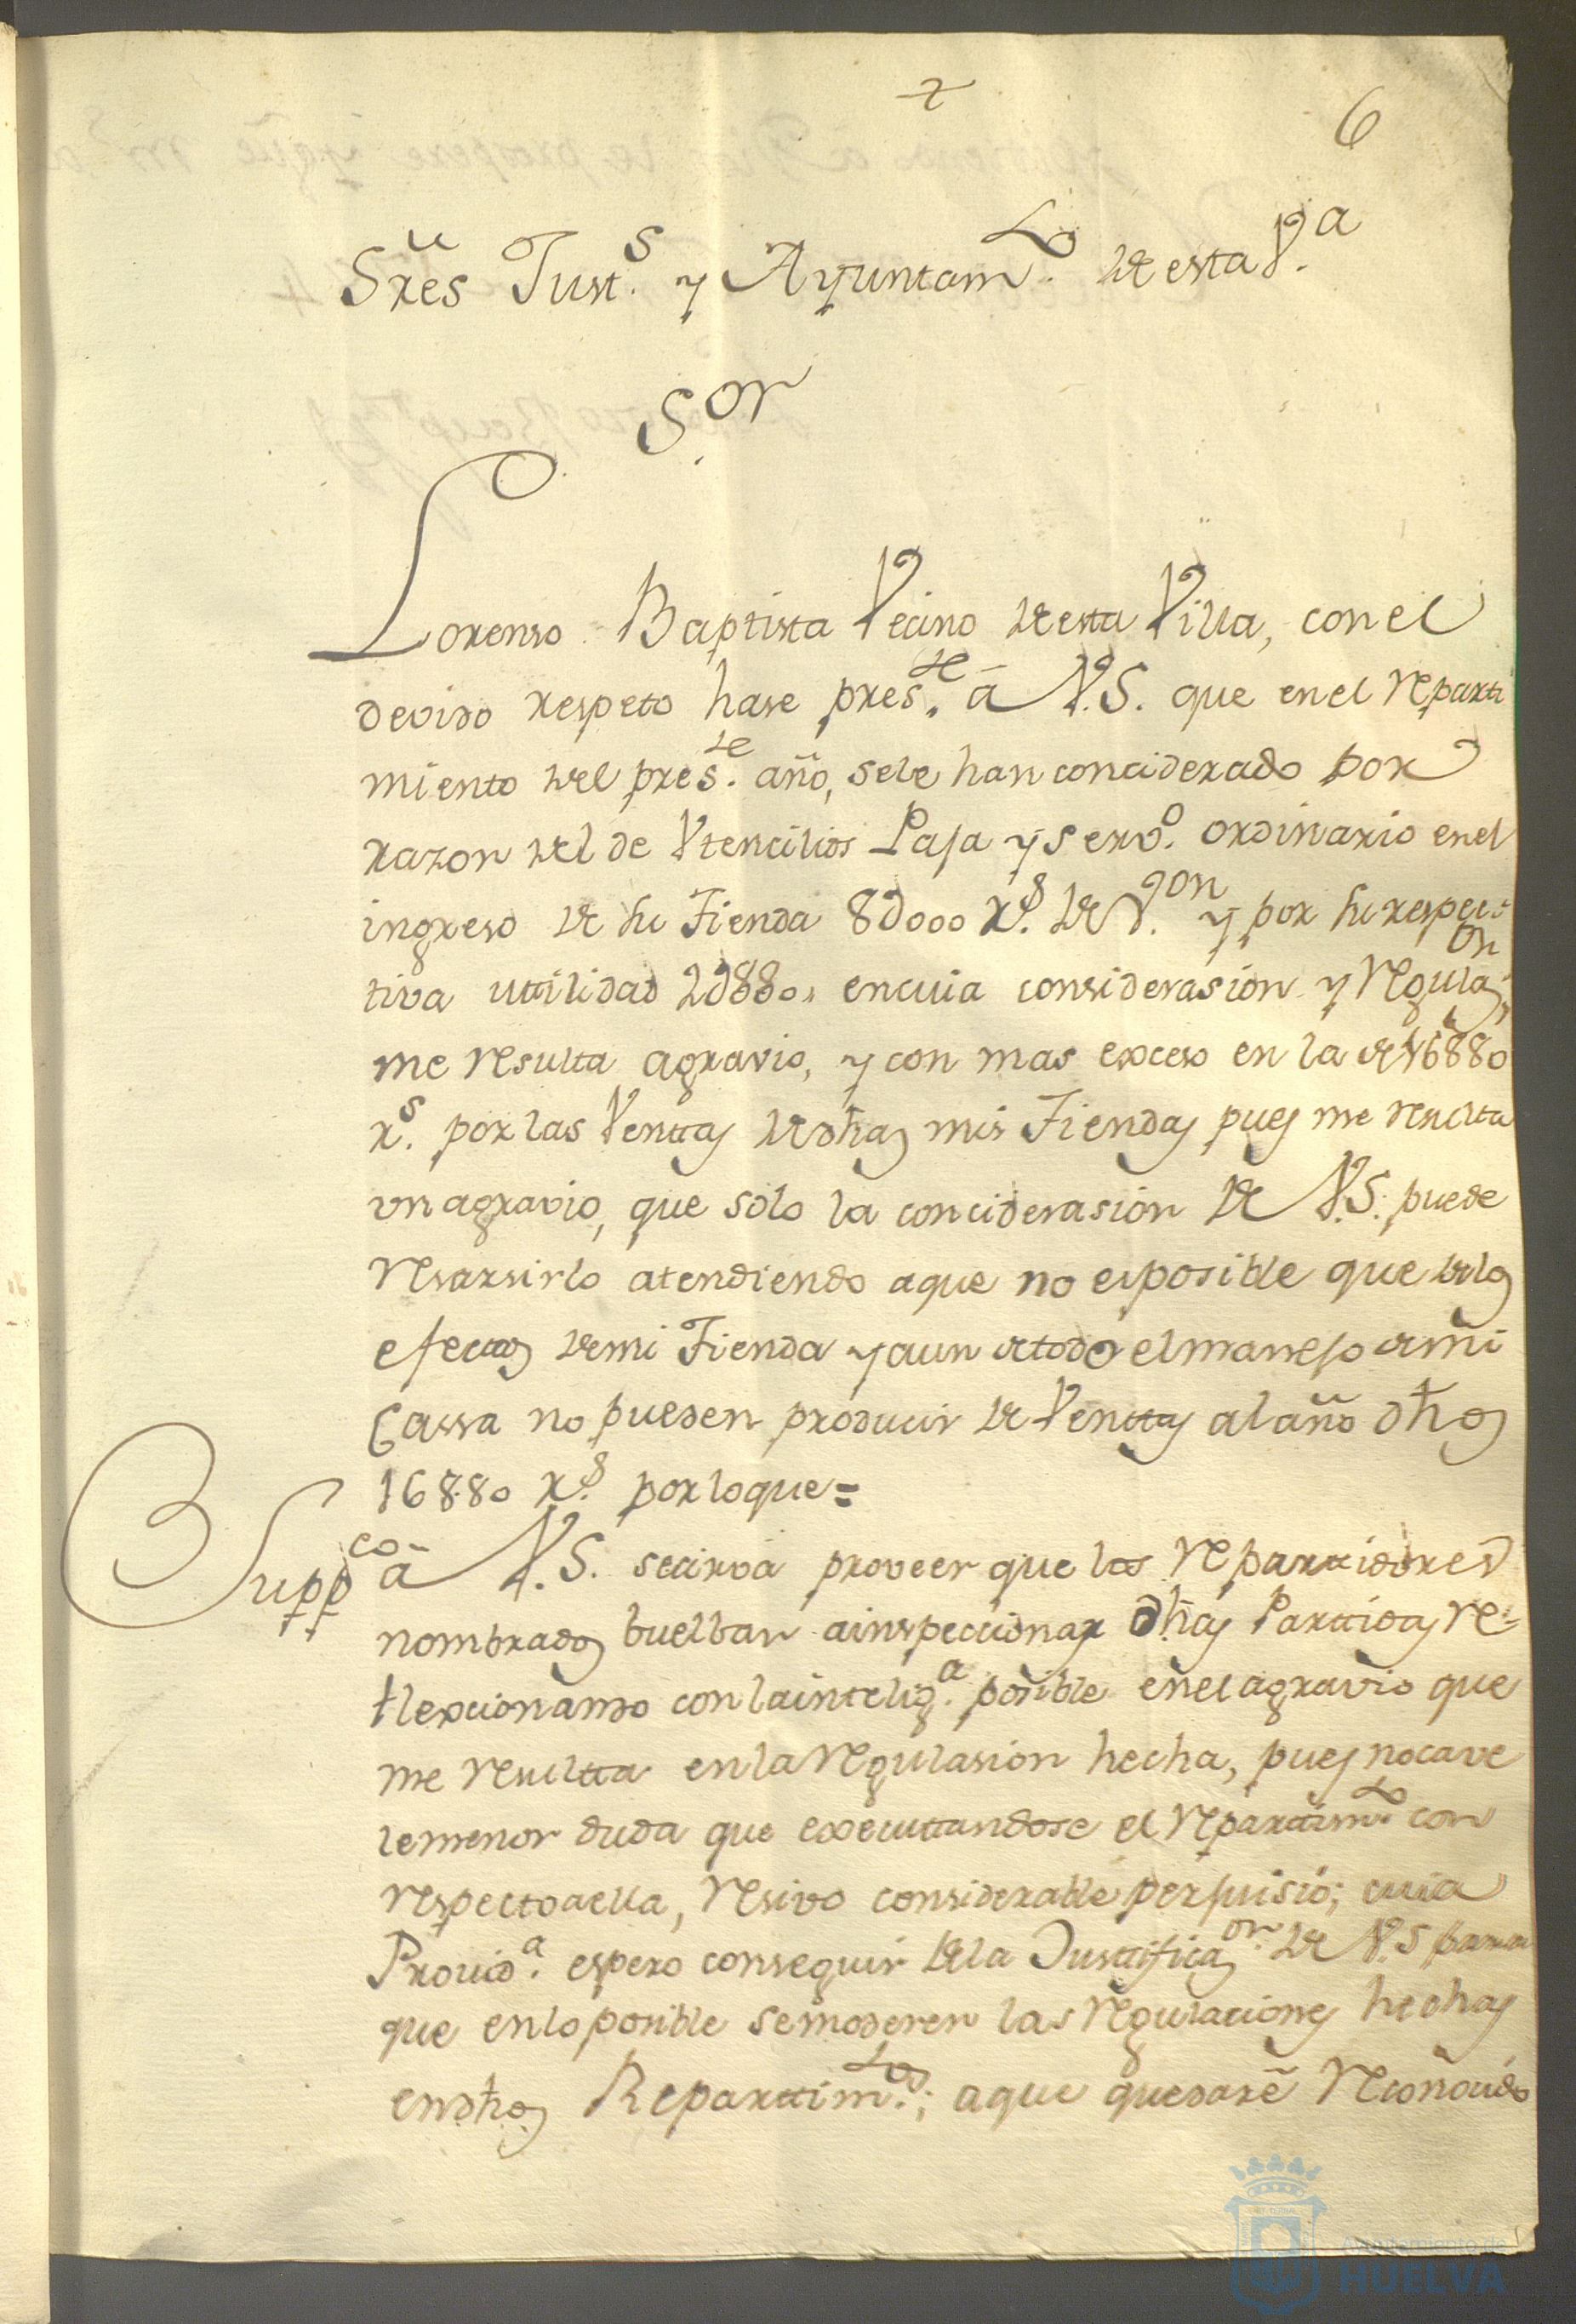 6
Sres Just.s y Ayuntam.to de esta V.a
S.or
Lorenso Baptista Vecino de esta Villa, con el
devido respeto hase pres.te â V.S. que en el reparti
miento del pres.te año, sele han conciderado por
razon del de Vtencilios Paja y serv.o ordinario en el
ingreso de su Tienda 8D000 r.s de V.on y por su respec=
tiva utilidad 2D880, encuia considerasion y Regulaz.on
me resulta agravio, y con mas exceso en la de 16880
r.s por las Venttas de dhas mis Tiendas pues me resulta
un agravio, que solo la conciderasion de V.S. puede
resarsirlo atendiendo aque no es posible que de los
efecttos de mi Tienda y aun de todo el manejo de mi
Cassa no pueden producir de Venttas al año dhos
16880 r.s por loque=
Supp.co â V.S. secirva proveer que los Reparttidores
nombrados buelban ainspeccionar dhas Parttidas re=
flexcionando con laintelig.a posible en el agravio que
me resultta en la Regulasion hecha, pues nocave
lemenor duda que executtandose el Reparttim.to con
respecto aella, resivo considerable perjuisio; cuia
Provid.a espero conseguir dela Justtificaz.on de V.S para
que enlo posible semoderen las Regulaciones hechas
en dhos Reparttim.tos; aque quedarê reconoсido
Ayuntamiento de
HUELVA